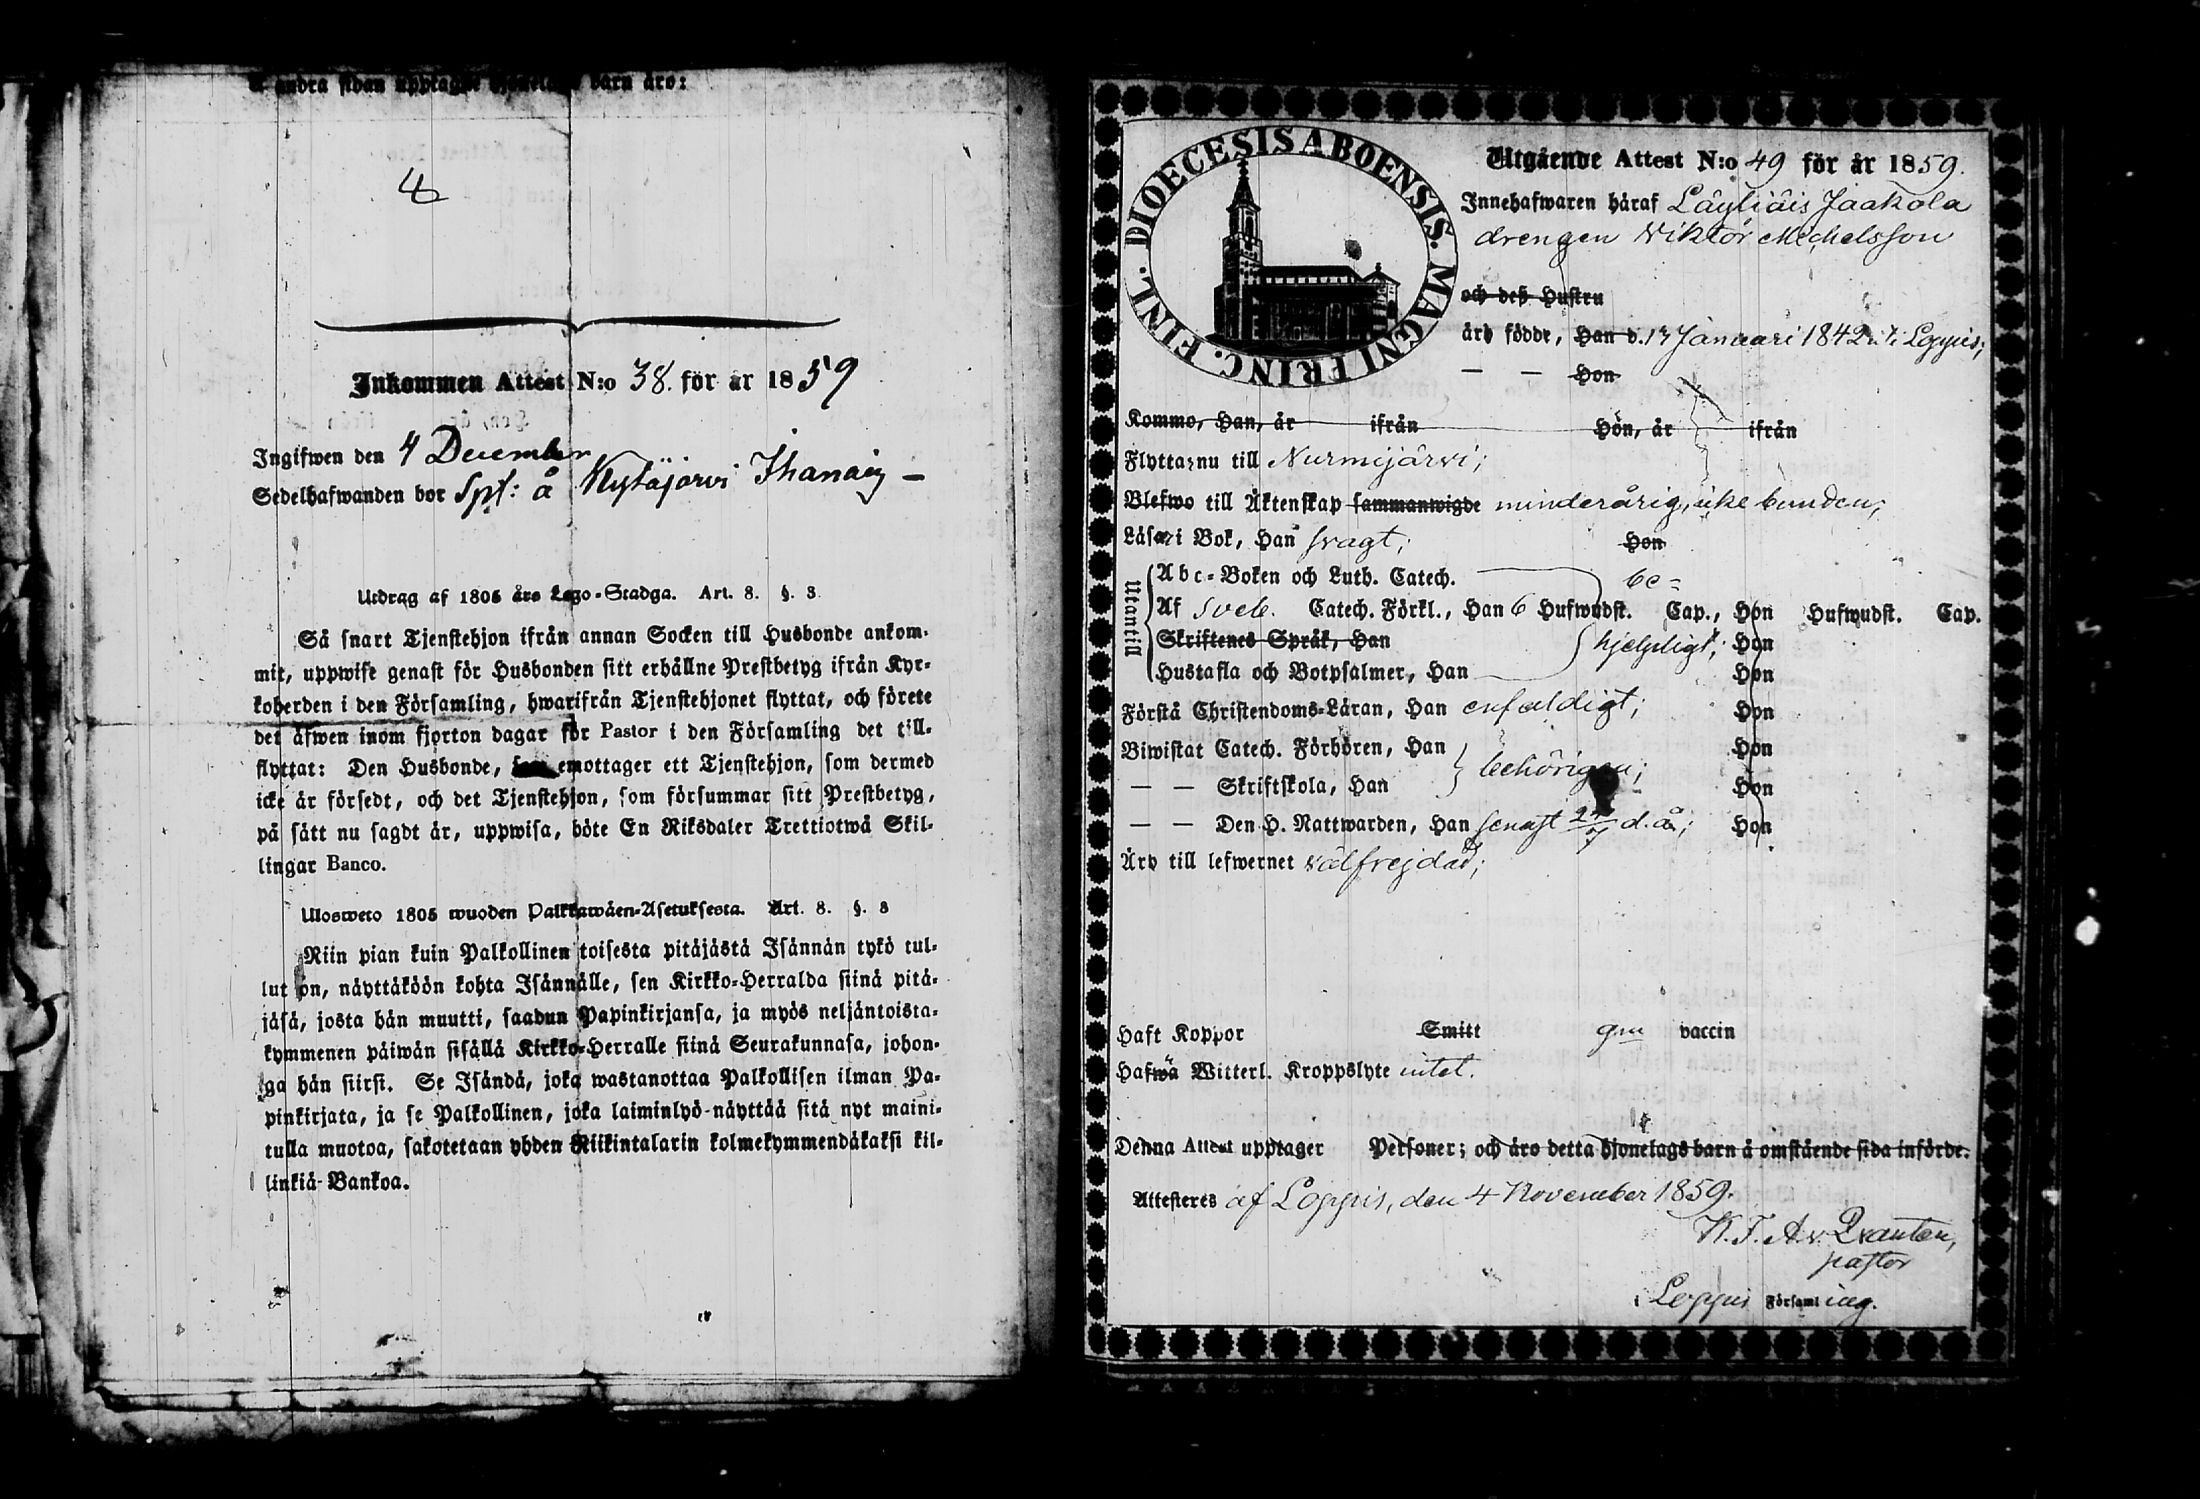 andra sidan upptagne barn äro:
4
Inkommen Attest N:o 38. för år 1859
Ingifwen den 4 December
Sedelhafwanden bor Spt: å Kytäjärvi
Utdrag af 1805 års Lego-Stadga. Art. 8. §. 3
Så snart Tjenstehjon ifrån annan Socken till Husbonde ankom-
mit, uppwise genast för Husbonden sitt erhållne Prestbetyg ifrån Kyr-
koherden i den Församling, hwarifrån Tjenstehjonet flyttat, och förete
det äfwen inom fjorton dagar för Pastor i den Församling det till-
flyttat: Den Husbonde, emottager ett Tjenstehjon, som dermed
icke är försedt, och det Tjenstehjon, som försummar sitt Prestbetyg,
på sätt nu sagdt är, uppwisa, böte En Riksdaler Trettiotwå Skil-
lingar Banco.
Uloswetо 1805 wuoden Palkkawäen-Asetuksesta. Art. 8. §. 3
Niin pian kuin Palkollinen toisesta pitäjästä Isännän tykö tul-
lut on, näyttäköön kohta Isännälle, sen Kirkko-Herralda siinä pitä-
jäsä, josta hän muutti, saadun Papinkirjansa, ja myös neljäntoista-
kymmenen päiwän sisällä Kirkko-Herralle siinä Seurakunnasa, johon-
ga hän siirsi. Se Isändä, joka wastanottaa Palkollisen ilman Pa-
pinkirjata, ja se Palkollinen, joka laiminlyö näyttää sitä nyt maini-
tulla muotoa, sakotetaan yhden Riikintalarin kolmekymmendäkaksi kil-
linkiä Bankoa.
DIOECESIS ABOENSIS. MAGNI PRINC. FINL.
Utgående Attest N:o 49 för år 1859.
Innehafwaren häraf Läyliäis Jaakola
drengen Viktor Michelsson
och deß Hustru
äro födde, Han d. 17 Januari 1842 i Loppis;
— — Hon
Kommo, Han, år ifrån Hon, år ifrån
Flytta nu till Nurmijärvi;
Blefwo till Äktenskap sammanwigde minderårig, icke bunden;
Läsa i Bok, Han svagt; Hon
Utantill
Abc-Boken och Luth. Catech.
Af Sveb. Catech. Förkl., Han 6 Hufwudst. Cap., Hon Hufwudst. Cap.
Skriftenes Språk, Han hjelpligt; Hon
Hustafla och Botpsalmer, Han Hon
Förstå Christendoms-Läran, Han enfaldigt; Hon
Biwistat Catech. Förhören, Han behörigen; Hon
— — Skriftskola, Han Hon
— — Den H. Nattwarden, Han senast d. å; Hon
Äro till lefwernet välfrejdad;
Haft Koppor Smitt gm vaccin
Hafwa Witterl. Kroppslyte intet.
Denna Attest upptager Personer; och äro detta hjonelags barn å omstående sida införde.
Attesteres af Loppis, den 4 November 1859.
K. F. A v. Qvanten,
pastor
i Loppis Församling.